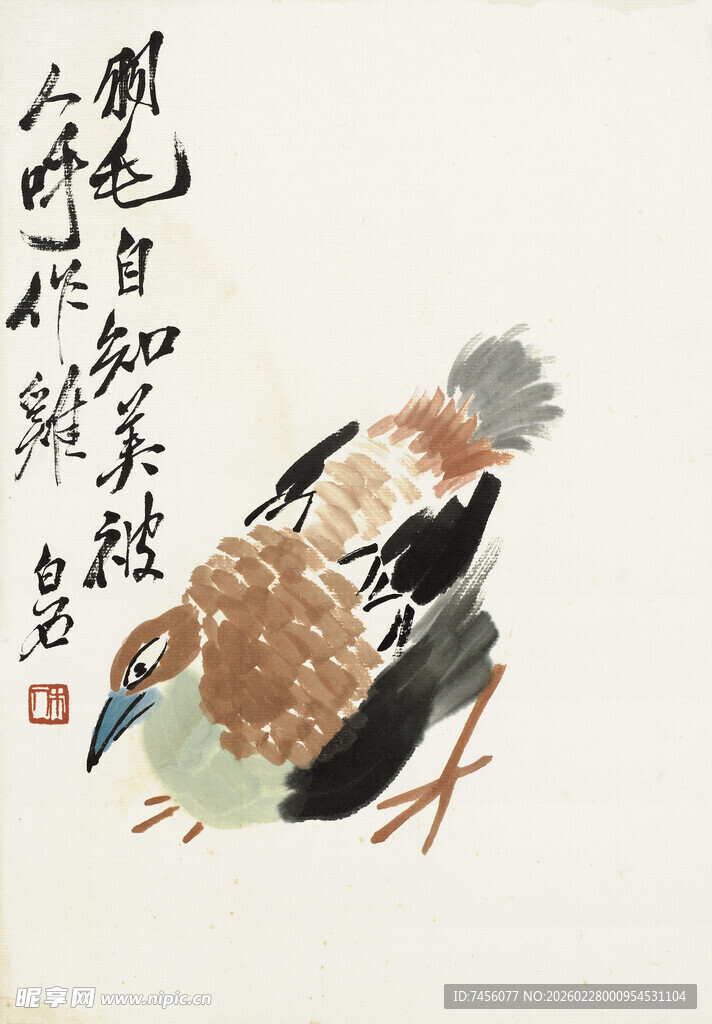 毛自知美被
人呼作雞
白石
昵享网 www.nipic.cn
ID:7456077 NO:20260228000954531104